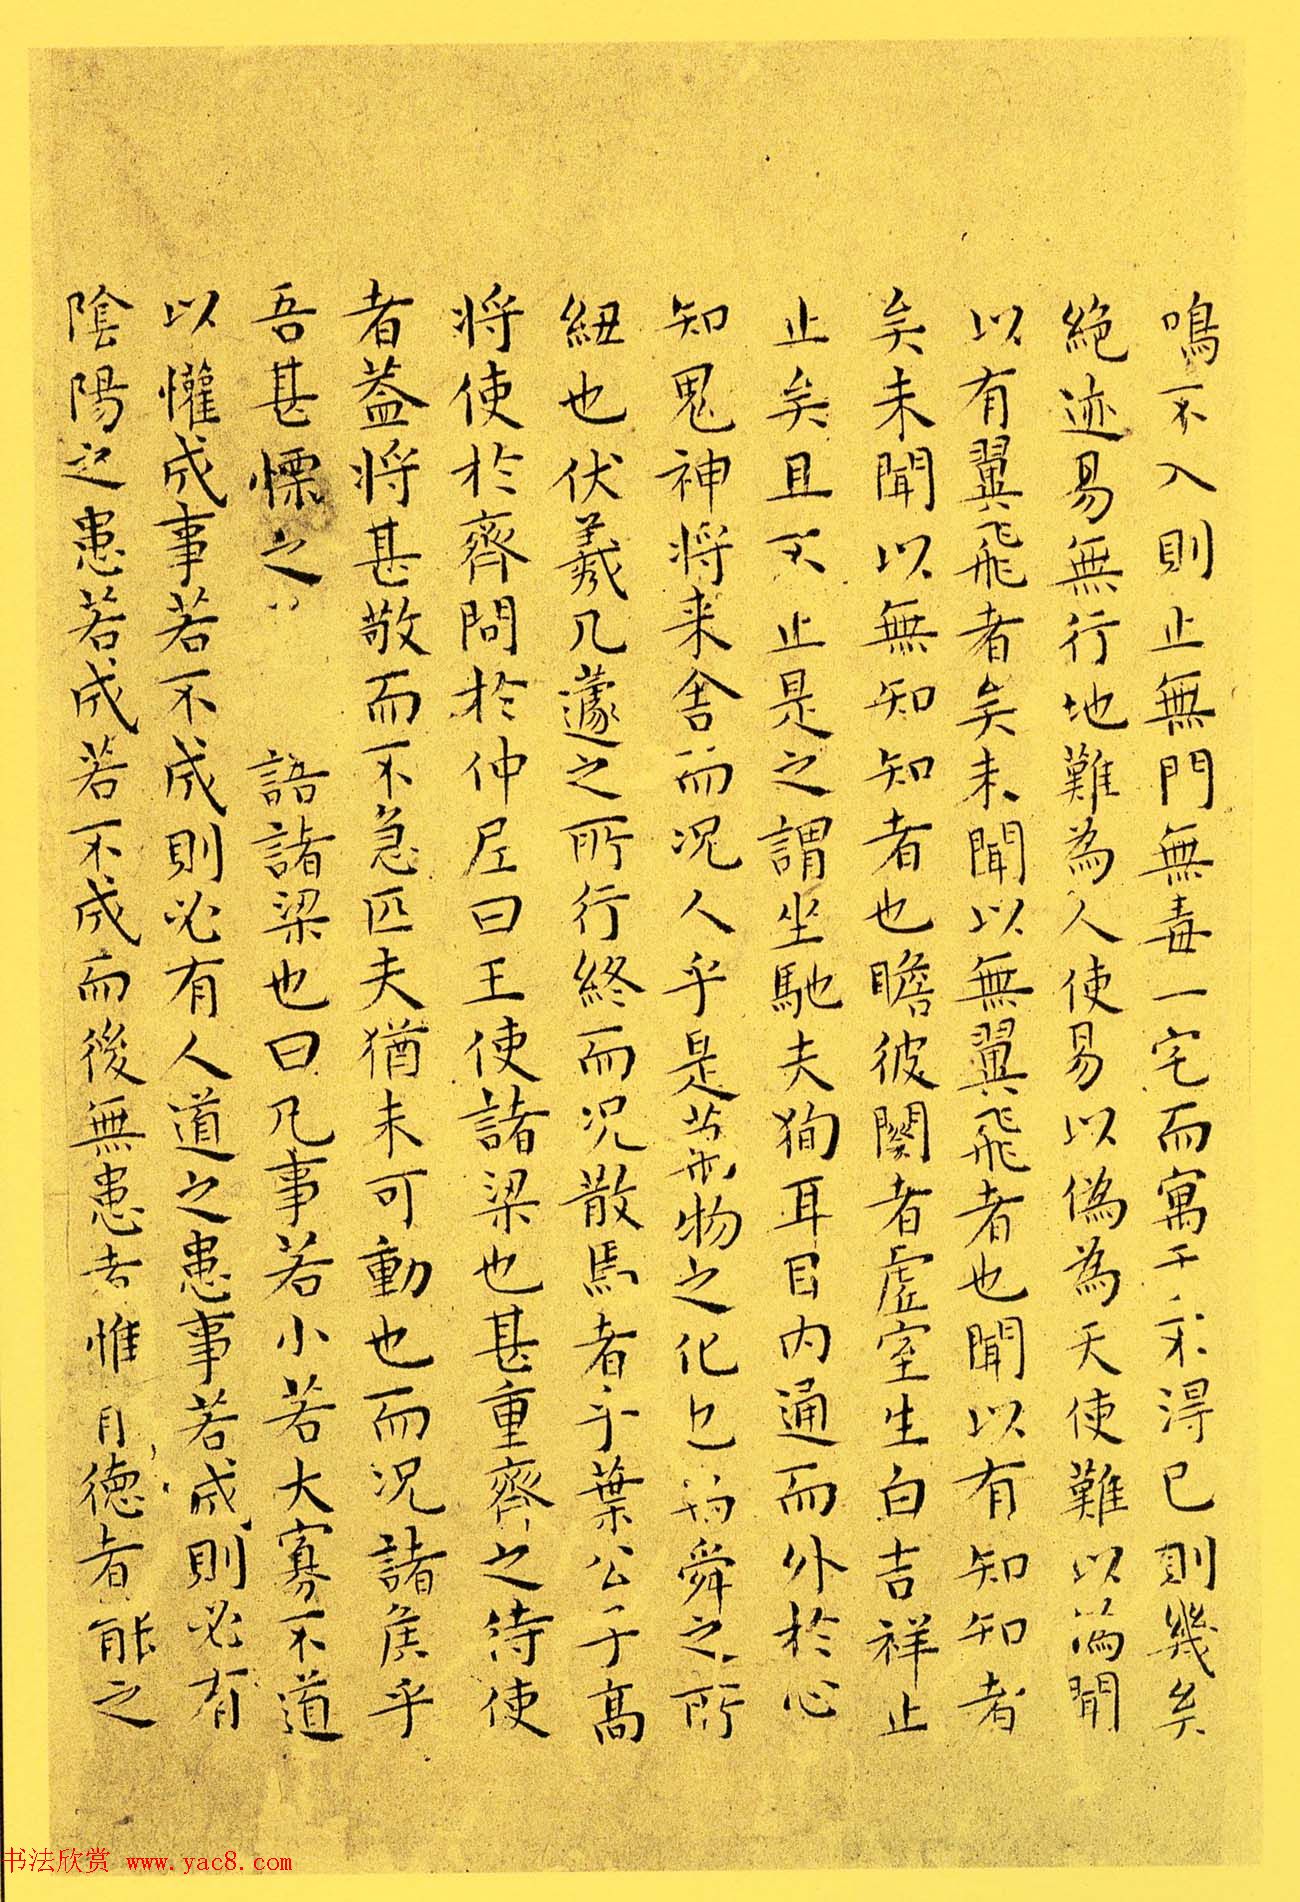 鳴不入則止無門無毒一宅而寓于不得已則幾矣
絕迹易無行地難為人使易以偽為天使難以偽聞
以有翼飛者矣未聞以無翼飛者也聞以有知知者
矣未聞以無知知者也瞻彼闋者虛室生白吉祥止
止矣且不止是之謂坐馳夫狥耳目內通而外於心
知鬼神將来舍而况人乎是萬物之化也禹舜之所
紐也伏羲几蘧之所行終而况散焉者乎葉公子高
將使於齊問於仲尼曰王使諸梁也甚重齊之待使
者葢將甚敬而不急匹夫猶未可動也而况諸侯乎
吾甚慄之 語諸梁也曰凡事若小若大寡不道
以懽成事若不成則必有人道之患事若成則必有
陰陽之患若成若不成而後無患者惟有德者能之
书法欣赏 www.yac8.com